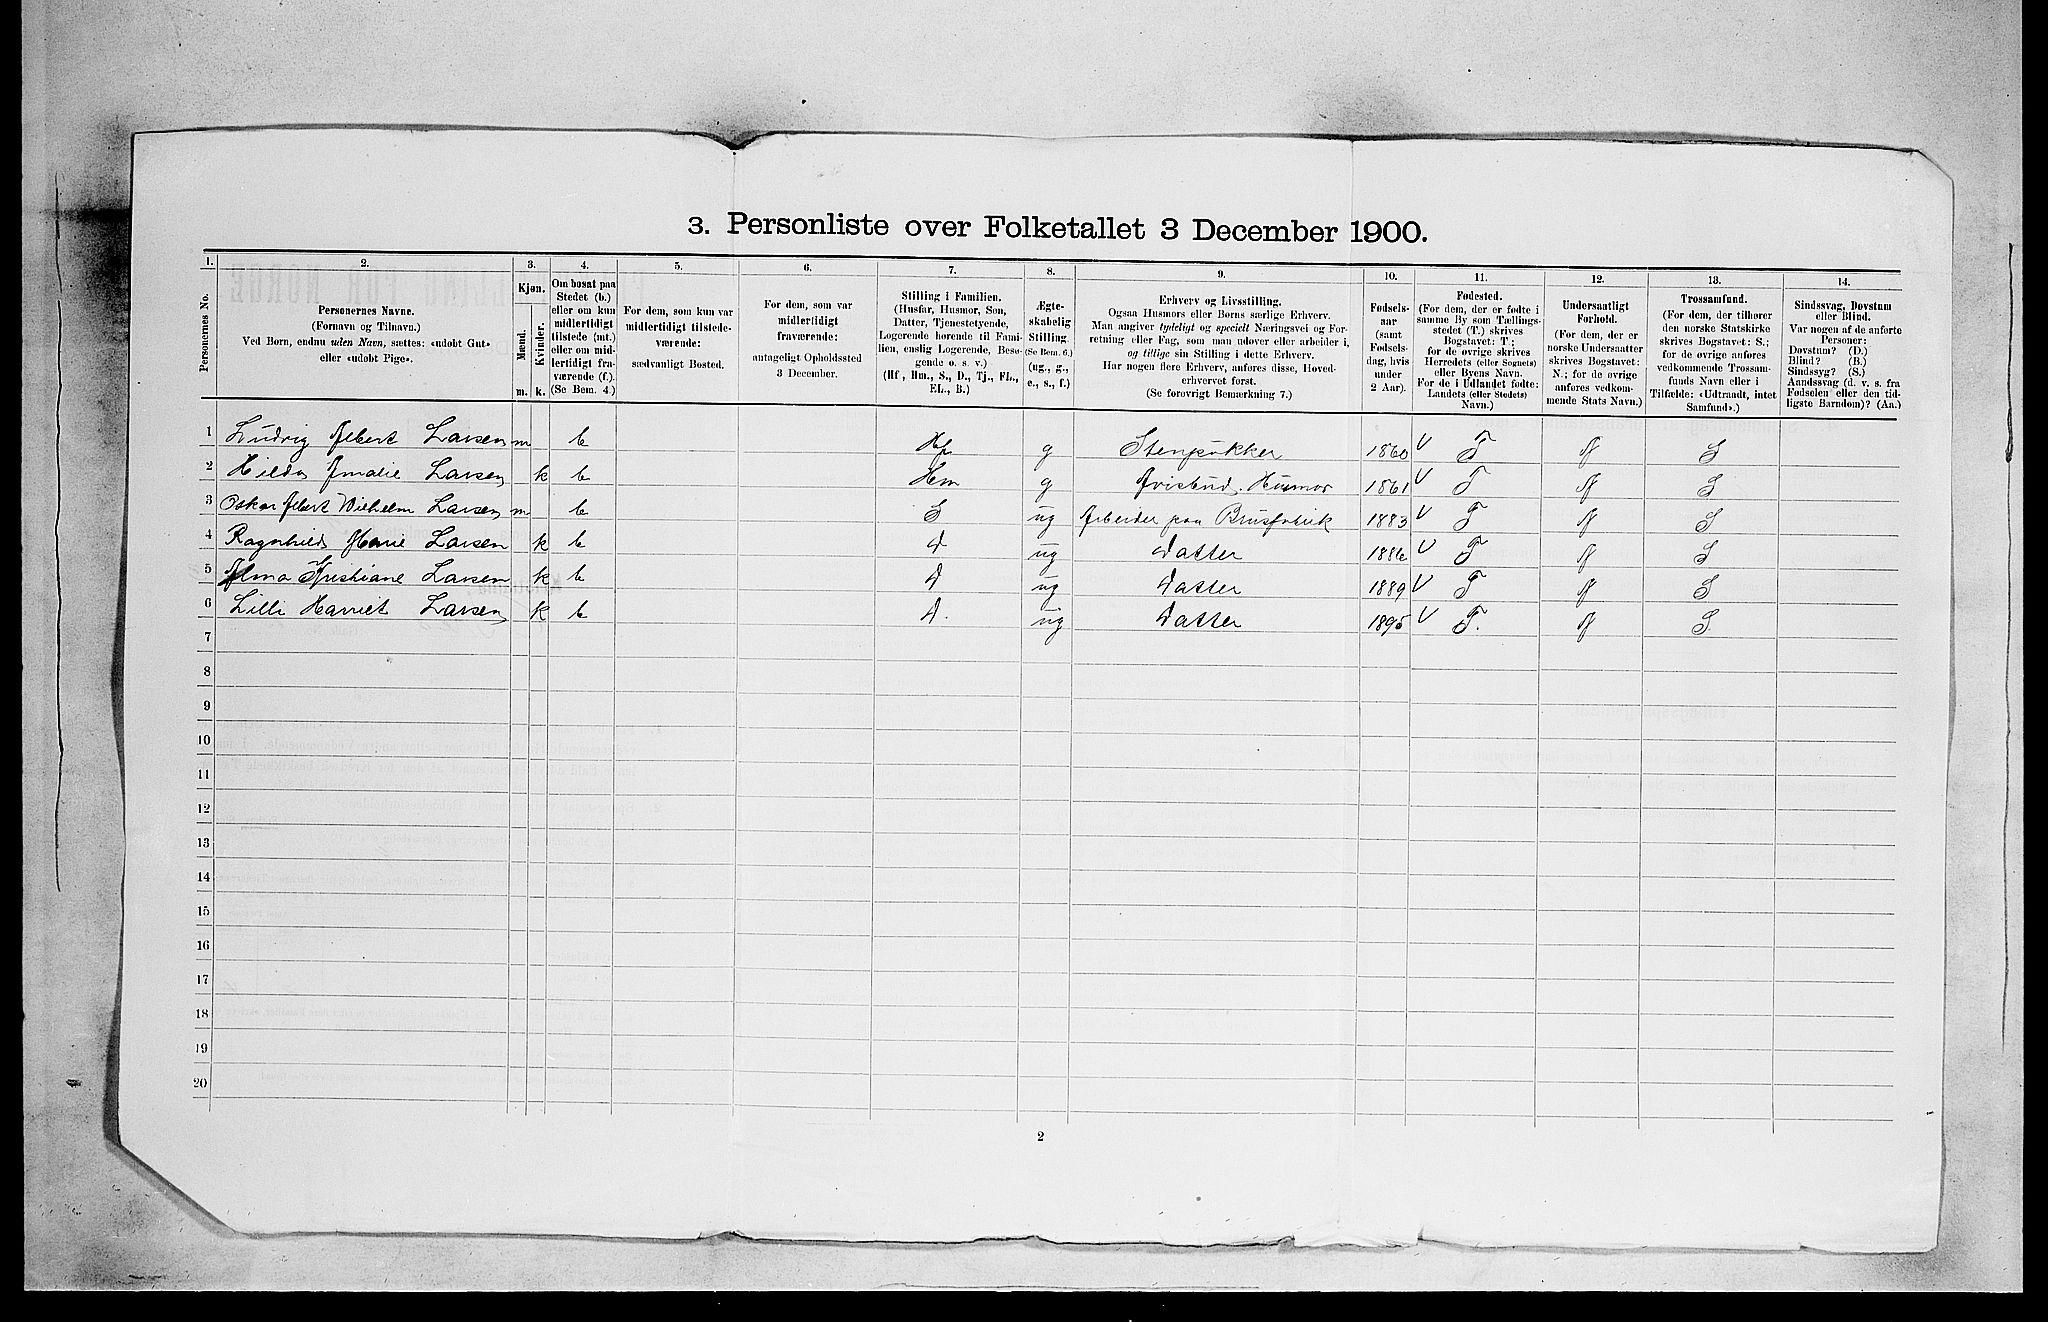 3. Personliste over Folketallet 3 December 1900.
1. 2. 3. 4. 5. 6. 7. 8. 9. 10. 11. 12. 13. 14.
Personernes No.
Personernes Navne.
(Fornavn og Tilnavn.)
Ved Børn, endnu uden Navn, sættes: «udøbt Gut»
eller «udøbt Pige».
Kjøn.
Mænd.
Kvinder.
m. k.
Om bosat paa
Stedet (b.)
eller om kun
midlertidigt
tilstede (mt.)
eller om mid-
lertidigt fra-
værende (f.).
(Se Bem. 4.)
For dem, som kun var
midlertidigt tilstede-
værende:
sædvanligt Bosted.
For dem, som var
midlertidigt
fraværende:
antageligt Opholdssted
3 December.
Stilling i Familien.
(Husfar, Husmor, Søn,
Datter, Tjenestetyende,
Logerende hørende til Fami-
lien, enslig Logerende, Besø-
gende o. s. v.)
(Hf, Hm., S., D., Tj., FL.,
EL., B.)
Ægte-
skabelig
Stilling.
(Se Bem. 6.)
(ug., g.,
e., s., f.)
Erhverv og Livsstilling.
Ogsaa Husmors eller Børns særlige Erhverv.
Man angiver tydeligt og specielt Næringsvei og For-
retning eller Fag, som man udøver eller arbeider i,
og tillige sin Stilling i dette Erhverv.
Har nogen flere Erhverv, anføres disse, Hoved-
erhvervet først.
(Se forøvrigt Bemærkning 7.)
Fødsels-
aar
(samt
Fødsels-
dag, hvis
under
2 Aar).
Fødested.
(For dem, der er fødte i
samme By som Tællings-
stedet (T.) skrives
Bogstavet: T;
for de øvrige skrives
Herredets (eller Sognets)
eller Byens Navn.
For de i Udlandet fødte:
Landets (eller Stedets)
Navn.)
Undersaatligt
Forhold.
(For dem, der er
norske Undersaatter
skrives Bogstavet:
N.; for de øvrige
anføres vedkom-
mende Stats Navn.)
Trossamfund.
(For dem, der tilhører
den norske Statskirke
skrives Bogstavet: S.;
for de øvrige anføres
vedkommende Trossam-
funds Navn eller i
Tilfælde: «Udtraadt, intet
Samfund».)
Sindssvag, Døvstum
eller Blind.
Var nogen af de anførte
Personer:
Døvstum? (D.)
Blind? (B.)
Sindssyg? (S.)
Aandssvag (d. v. s. fra
Fødselen eller den tid-
ligste Barndom)? (Aa.)
1 Ludvig Albert Larsen m b Hf g Stenpukker 1860 V T N S
2 Hilda Amalie Larsen k b Hm g Avisbud. Husmor 1861 V T N S
3 Oskar Albert Wilhelm Larsen m b S ug Arbeider paa Brusfabrik 1883 V T N S
4 Ragnhild Marie Larsen k b D ug Datter 1886 V T N S
5 Alma Kristiane Larsen k b D ug Datter 1889 V T N S
6 Lilli Harriet Larsen k b D. ug Datter 1895 V T. N S.
7
8
9
10
11
12
13
14
15
16
17
18
19
20
2